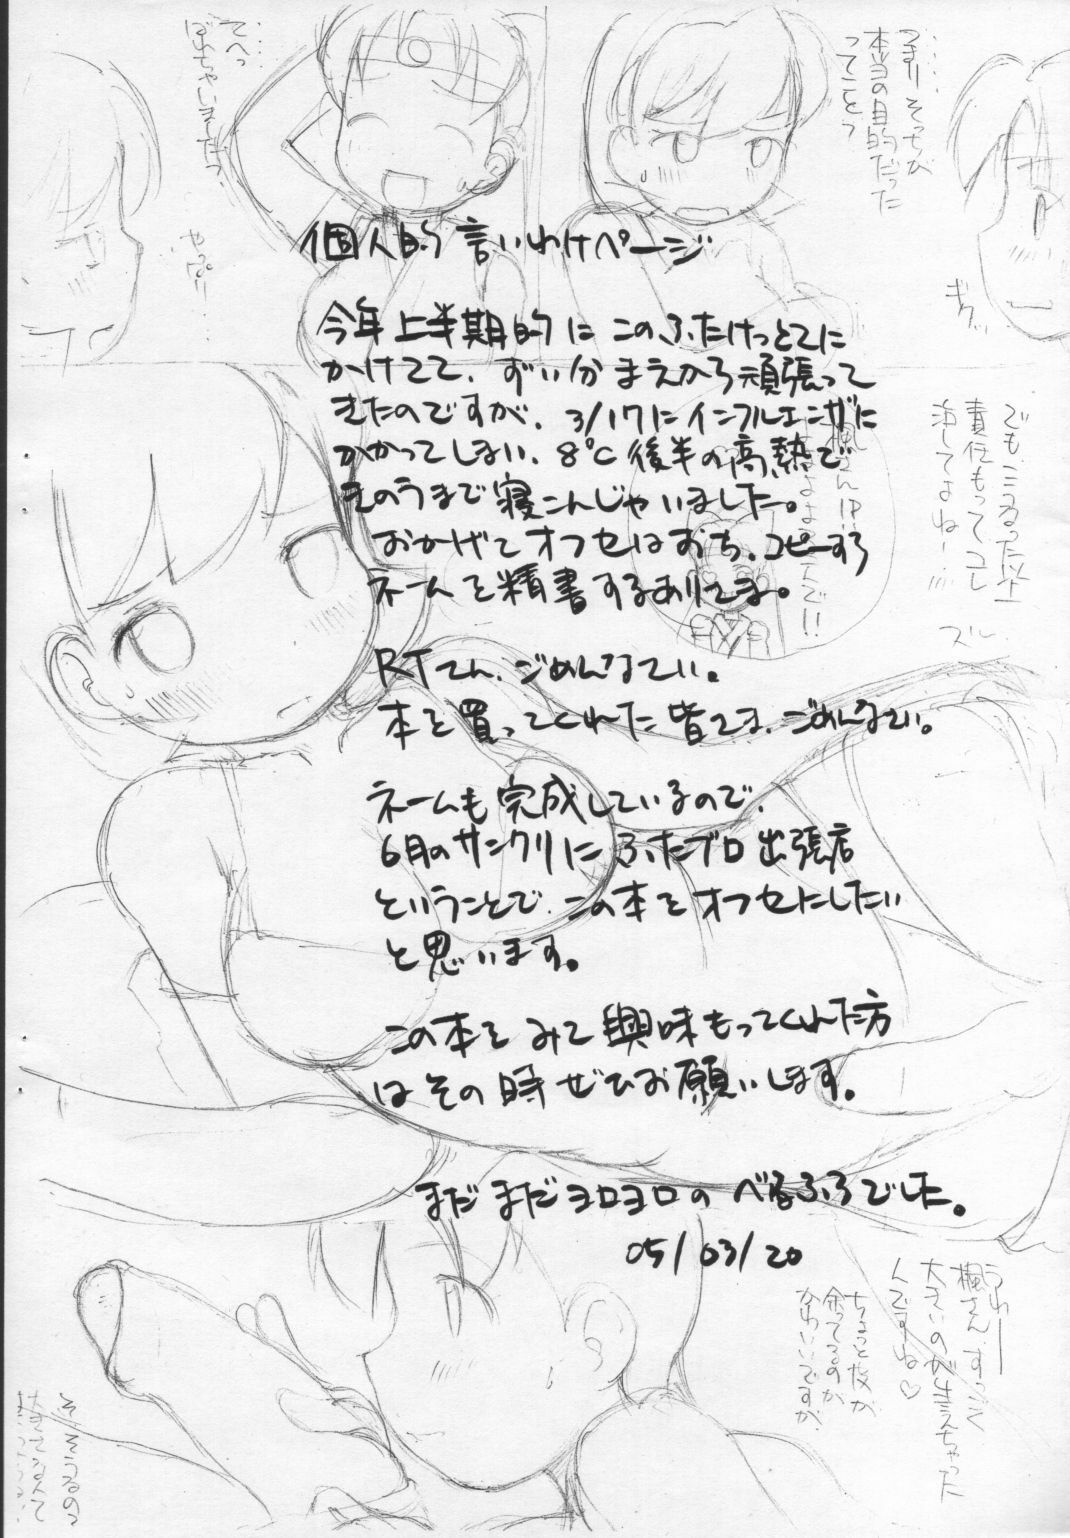 個人的言いわけページ
今年上半期的にこのふたけっとてに
かけてて、ずい分まえから頑張って
きたのですが、3/17にインフルエンザに
かかってしまい、8℃後半の高熱で
きのうまで寝こんじゃいました。
おかげでオフセはおち。コピーすら
ネームを精書するありさま。
RTさん、ごめんなさい。
本を買ってくれた皆さま、ごめんなさい。
ネームも完成しているので、
6月のサンクリにふたブロ出張店
ということで、この本をオフセにしたい
と思います。
この本をみて興味もってくれた方
はその時ぜひお願いします。
まだまだヨロヨロのべるふろでした。
05/03/20
つまりそっちが
本当の目的だった
ってことっ
ギクッ
責任もってコレ
ズル
うわー
楓さん、すっごく
大きいのが生えちゃった
んですね♡
ちょっと皮が
余ってるのが
かわいいですが